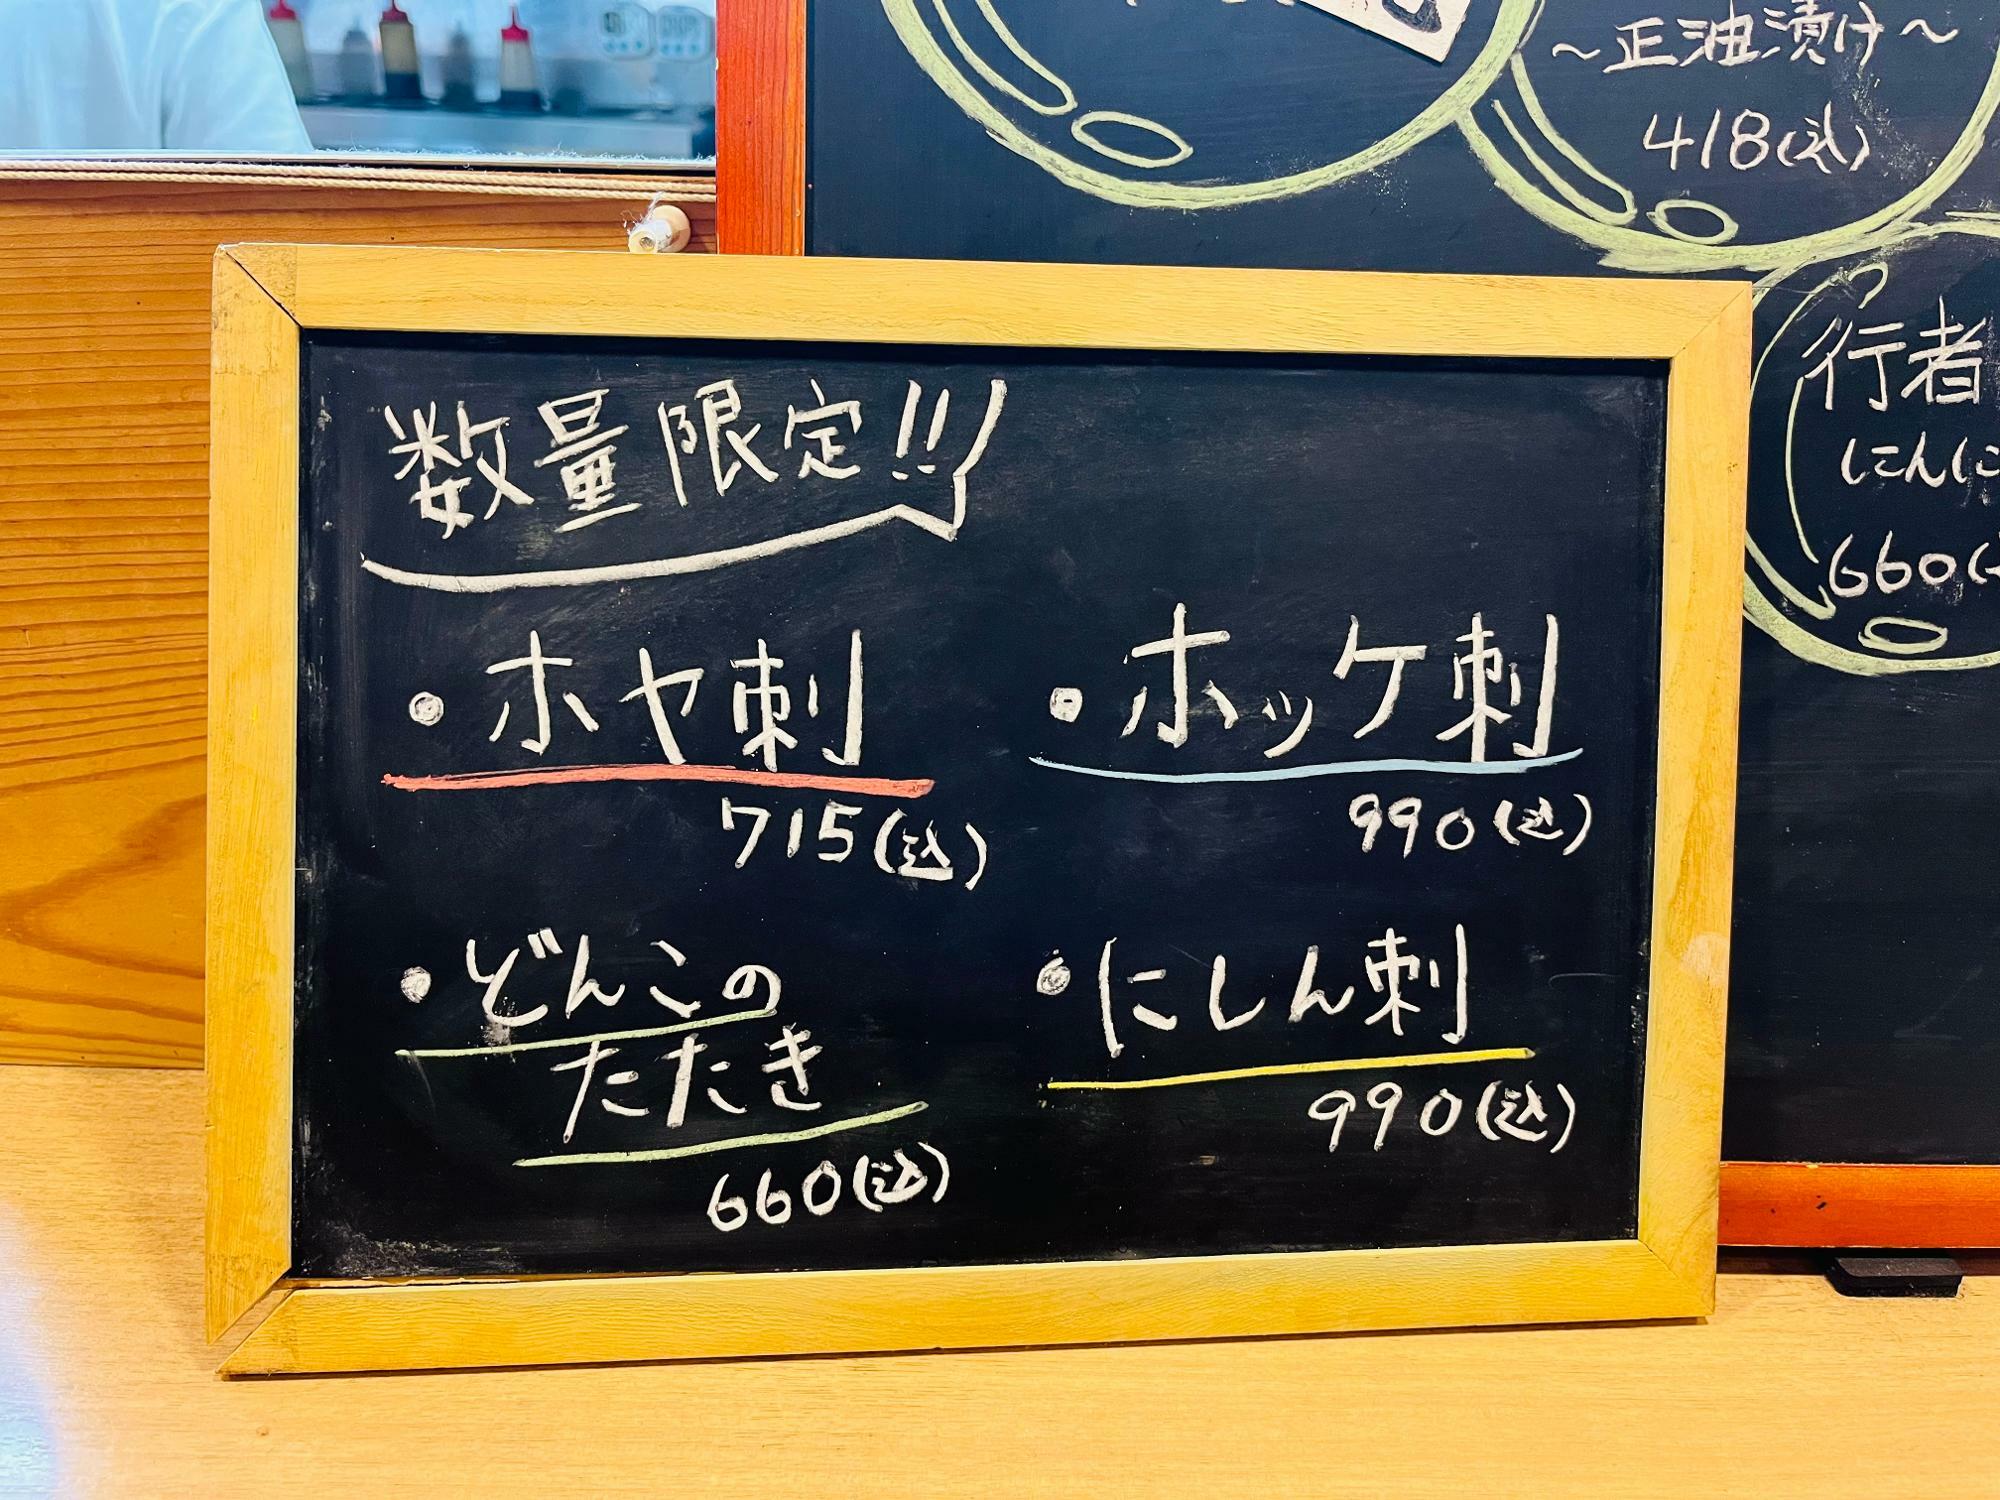 ~正油漬け~
418(込)
行者
にんに
660(
数量限定!!
・ホヤ刺
715(込)
・ホッケ刺
990(込)
・どんこの
たたき
660(込)
・にしん刺
990(込)